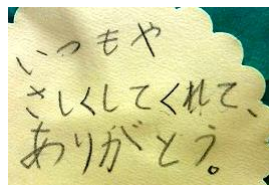 いつもや
さしくしてくれて、
ありがとう。